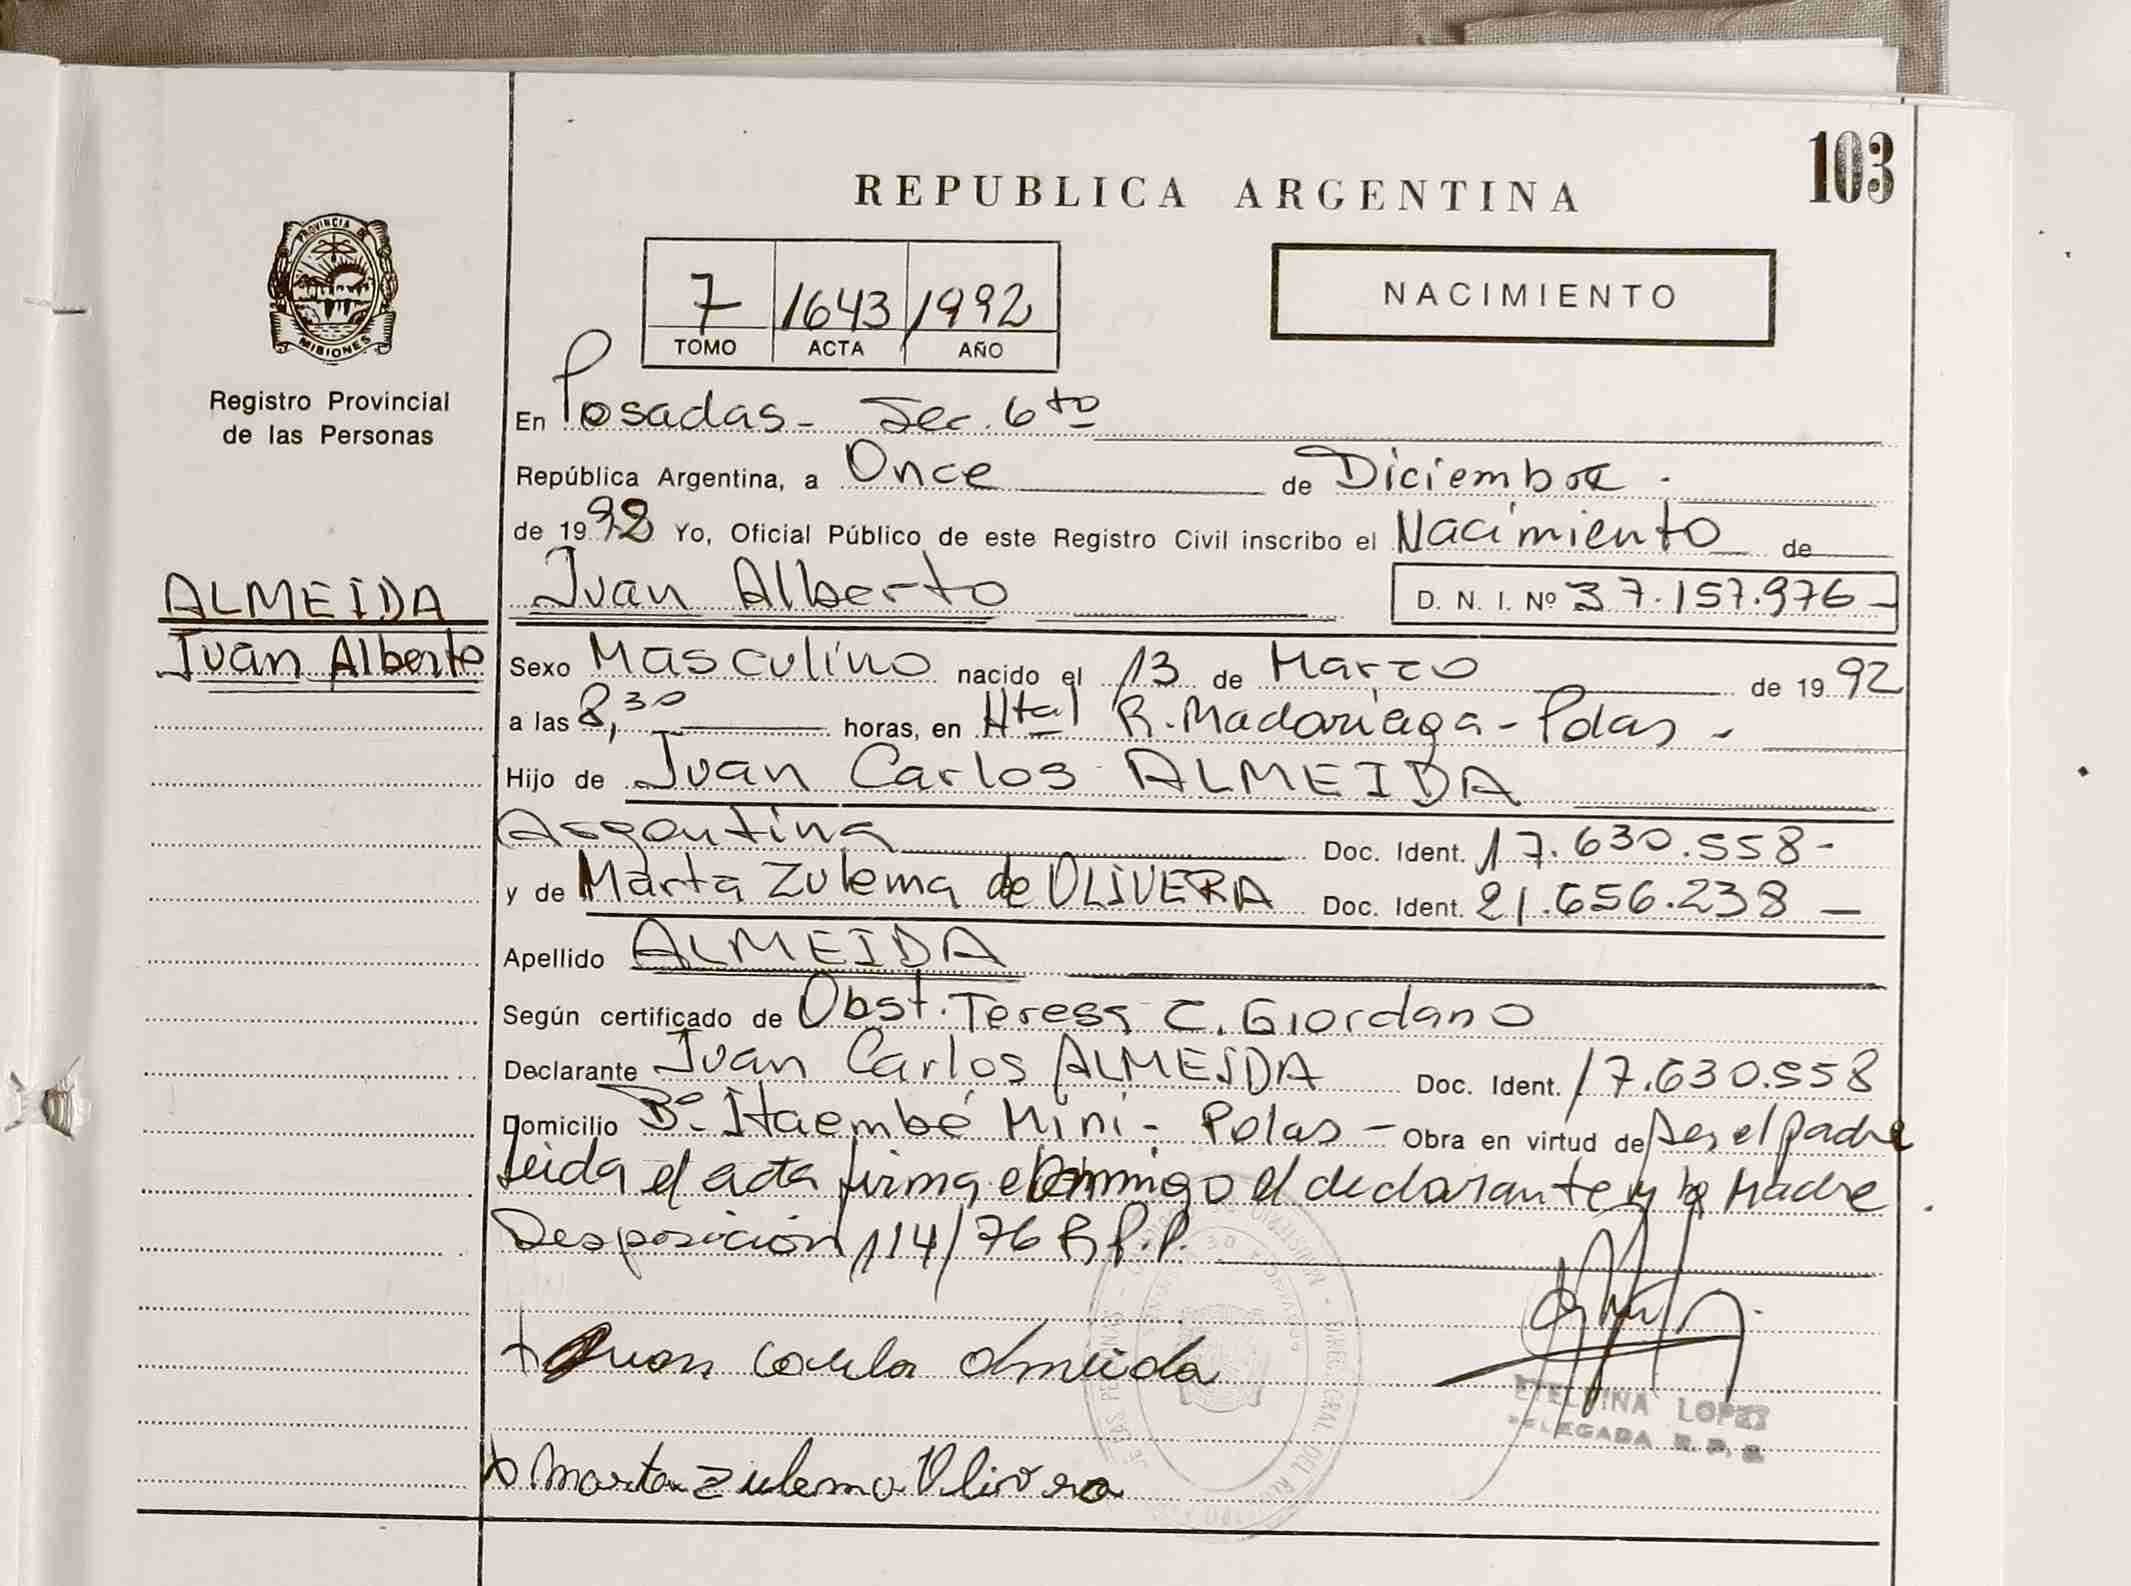 103
REPUBLICA ARGENTINA
PROVINCIA DE
MISIONES
Registro Provincial
de las Personas
7 1643 1992
TOMO ACTA AÑO
NACIMIENTO
En Posadas - Sec. 6to
República Argentina, a Once de Diciembre.
de 1992 Yo, Oficial Público de este Registro Civil inscribo el Nacimiento de
ALMEIDA
Juan Alberto
Juan Alberto D. N. I. Nº 37.157.976-
Sexo Masculino nacido el 13 de Marzo de 1992
a las 8,30 horas, en Htal R. Madariaga - Pdas -
Hijo de Juan Carlos ALMEIDA
Argentina Doc. Ident. 17.630.558-
y de Marta Zulema de OLIVERA Doc. Ident. 21.656.238 -
Apellido ALMEIDA
Según certificado de Obst. Teresa C. Giordano
Declarante Juan Carlos ALMEIDA Doc. Ident. 17.630.558
Domicilio Bº Itaembé Mini - Pdas - Obra en virtud de ser el padre
Leida el acta firma conmigo el declarante y la Madre.
Desposición 114/76 R.P.P.
Juan Carlos Almeida
ETELVINA LOPEZ
DELEGADA R. P. P.
Marta Zulema Olivera